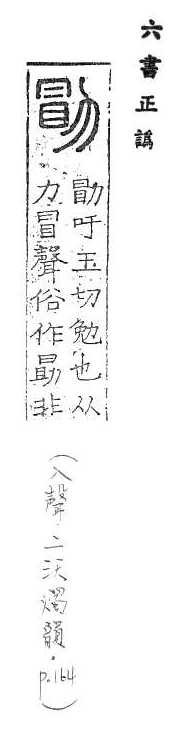 六書正譌
勖
勖吁玉切勉也从
力冒聲俗作勗非
(入聲.二沃燭韻.p.164)